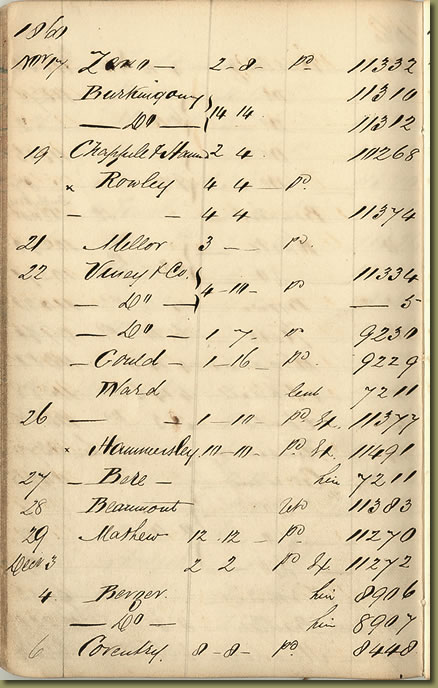 1860
Nov 17 Zeno — 2 - 8 - pd 11332
Burkingoung } 14 14 11310
— Do — 11312
19 Chapple & Ham 2 4 11268
x Rowley 4 4 — pd
— — 4 4 11374
21 Mellor 3 — — pd.
22 Viney & Co. } 4 - 10 - pd 11334
— Do — — 5
— Do — 1 - 7 - pd 9230
— Gould — 1 - 16 - pd 9229
Ward lent 7211
26 — — 1 - 10 — pd Ex. 11377
x Hammersley. 10 - 10 - pd Ex. 11491
27 — Bere — hire 7211
28 Beaumont 11383
29 Mathew 12 . 12 - pd 11270
Decr 3 2 2 pd Ex 11272
4 Berger. hire 8906
— Do — hire 8907
6 Coventry. 8 - 8 - pd. 8448